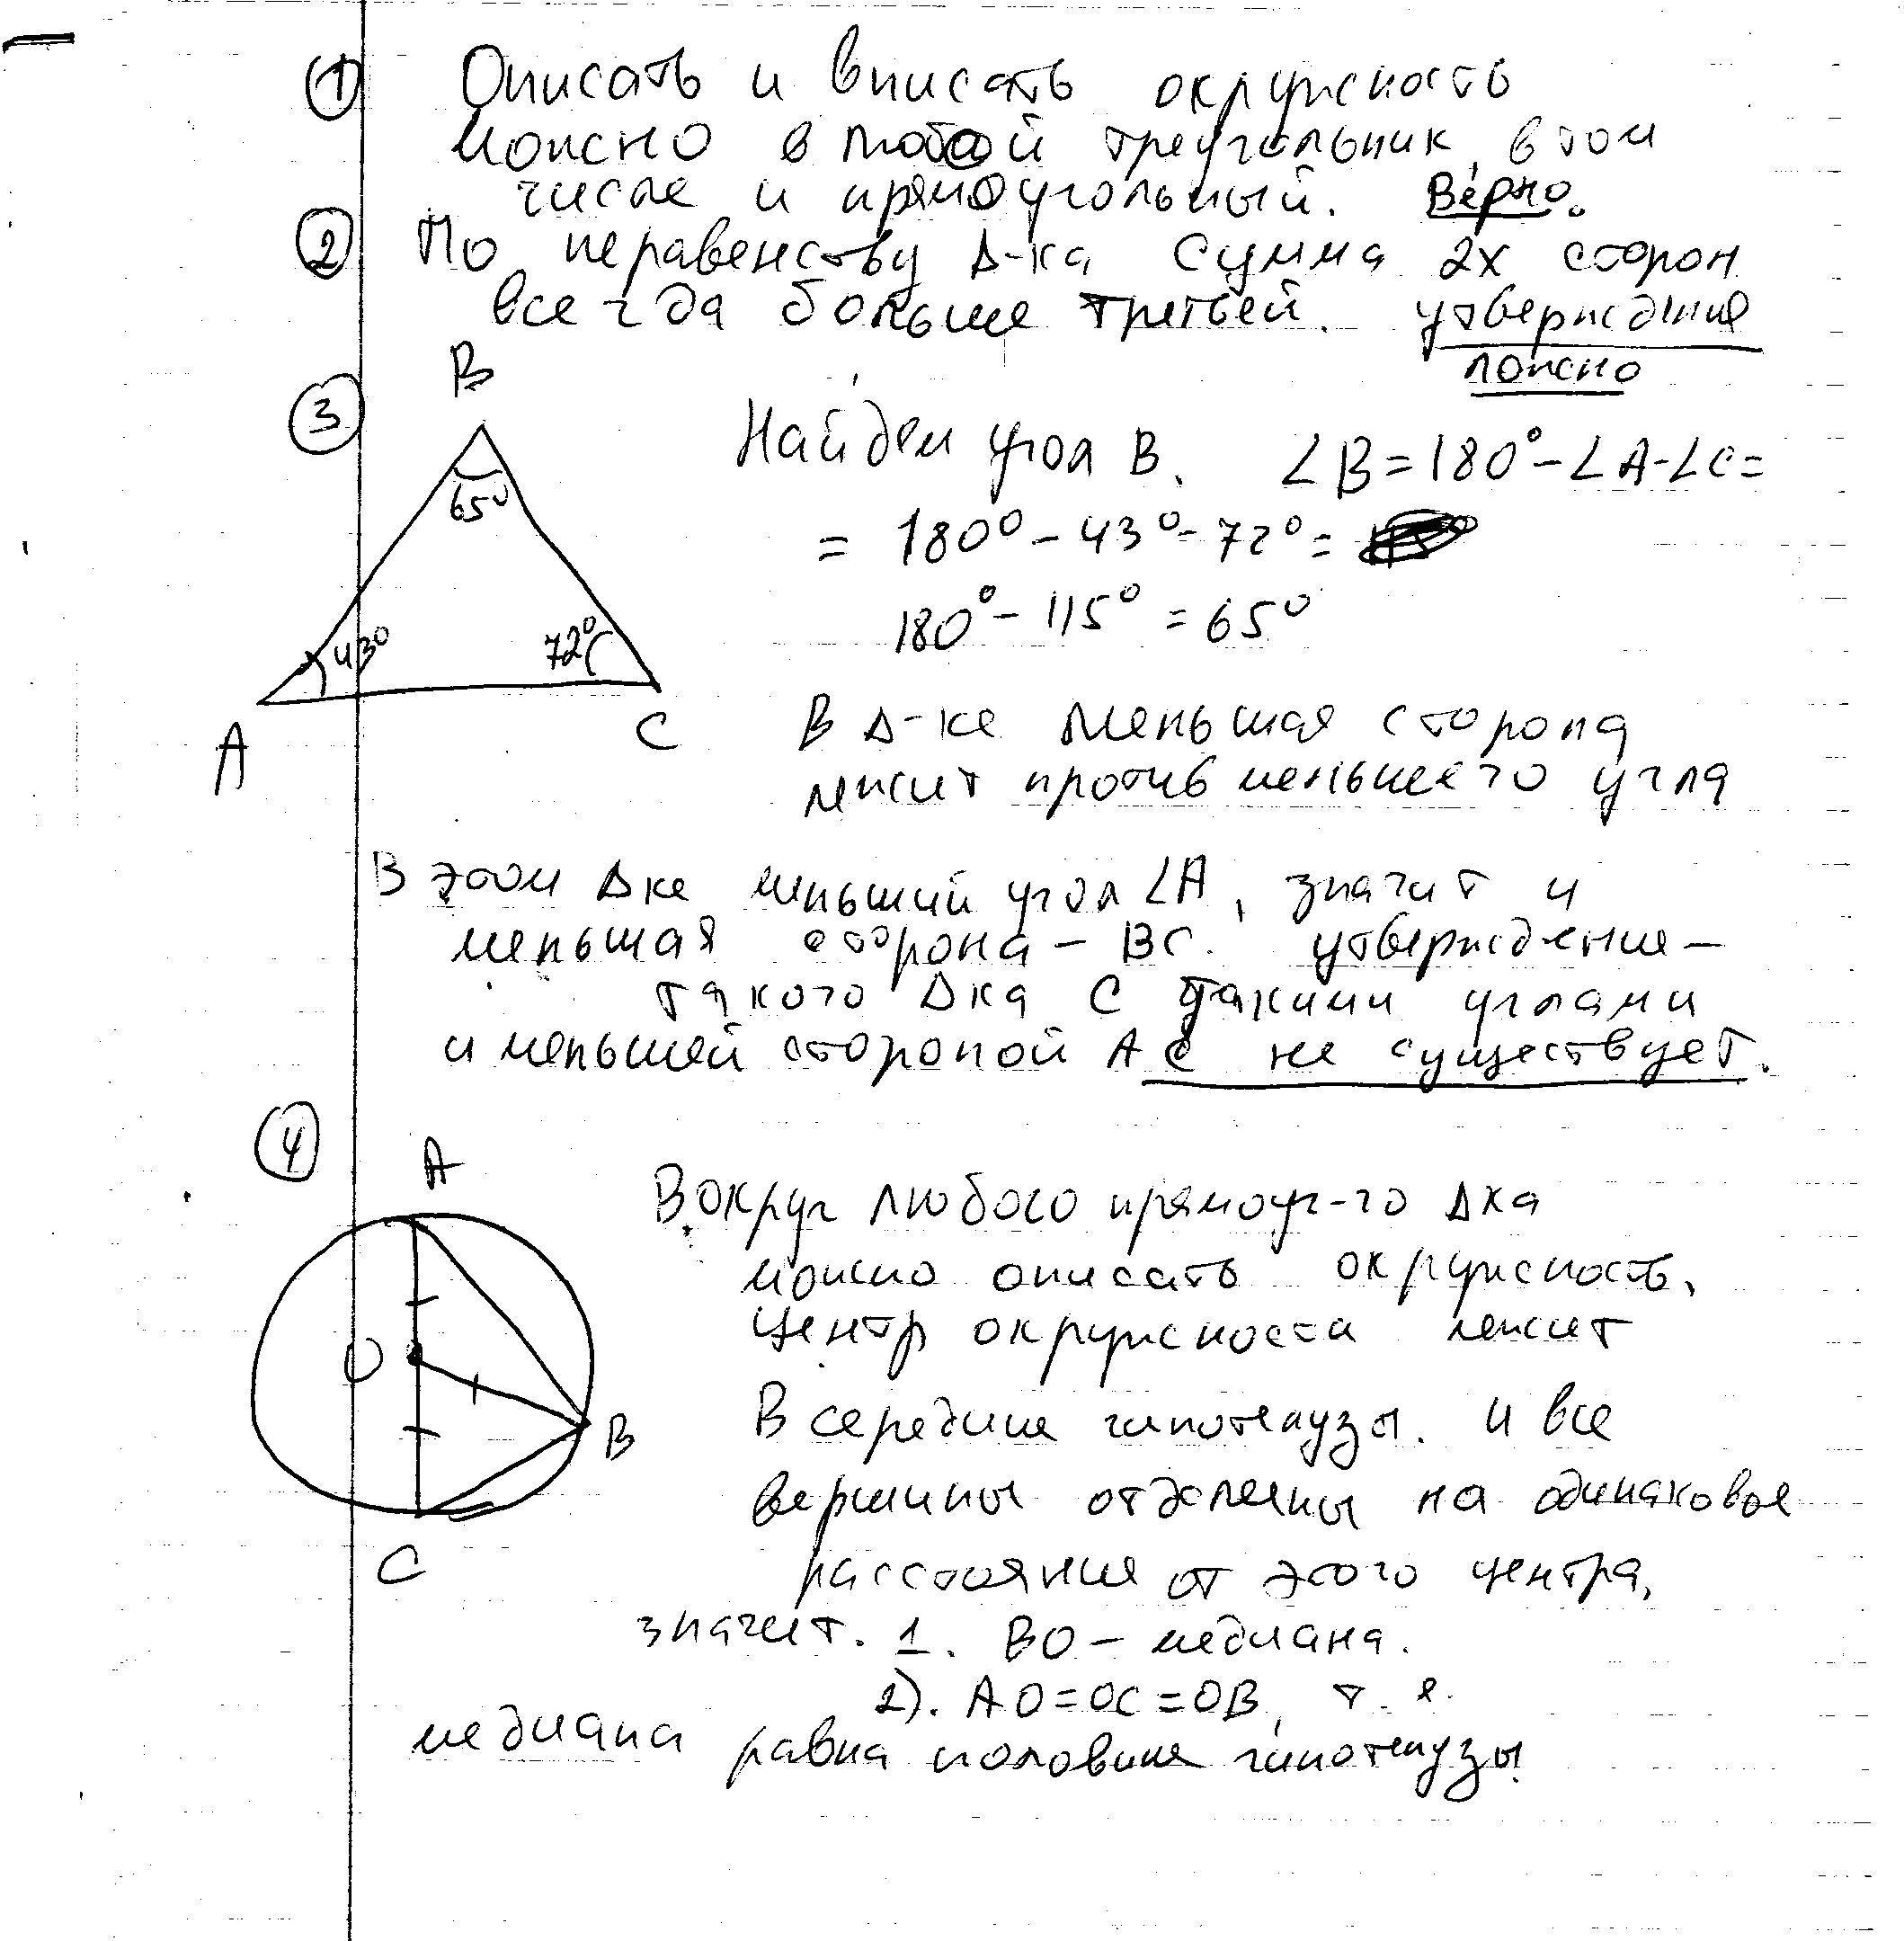 ① Описать и вписать окружность
можно в любой треугольник, в том
числе и прямоугольный. Верно.
② По неравенству Δ-ка сумма 2х сторон
всегда больше третьей. утверждение
ложно
③ B
Найдем угол B. ∠B=180°-∠A-∠C=
65°
= 180° - 43° - 72° =
180° - 115° = 65°
43° 72°
A C
В Δ-ке меньшая сторона
лежит против меньшего угла
В этом Δке меньший угол ∠A, значит и
меньшая сторона - BC. утверждение -
такого Δка с такими углами
и меньшей стороной AC не существует.
④ A
Вокруг любого прямоуг-го Δка
можно описать окружность,
центр окружности лежит
O
В середине гипотенузы. И все
B
вершины отдалены на одинаковые
расстояния от этого центра,
C
значит. 1. BO - медиана.
2). AO=OC=OB, т. е.
медиана равна половине гипотенузы.